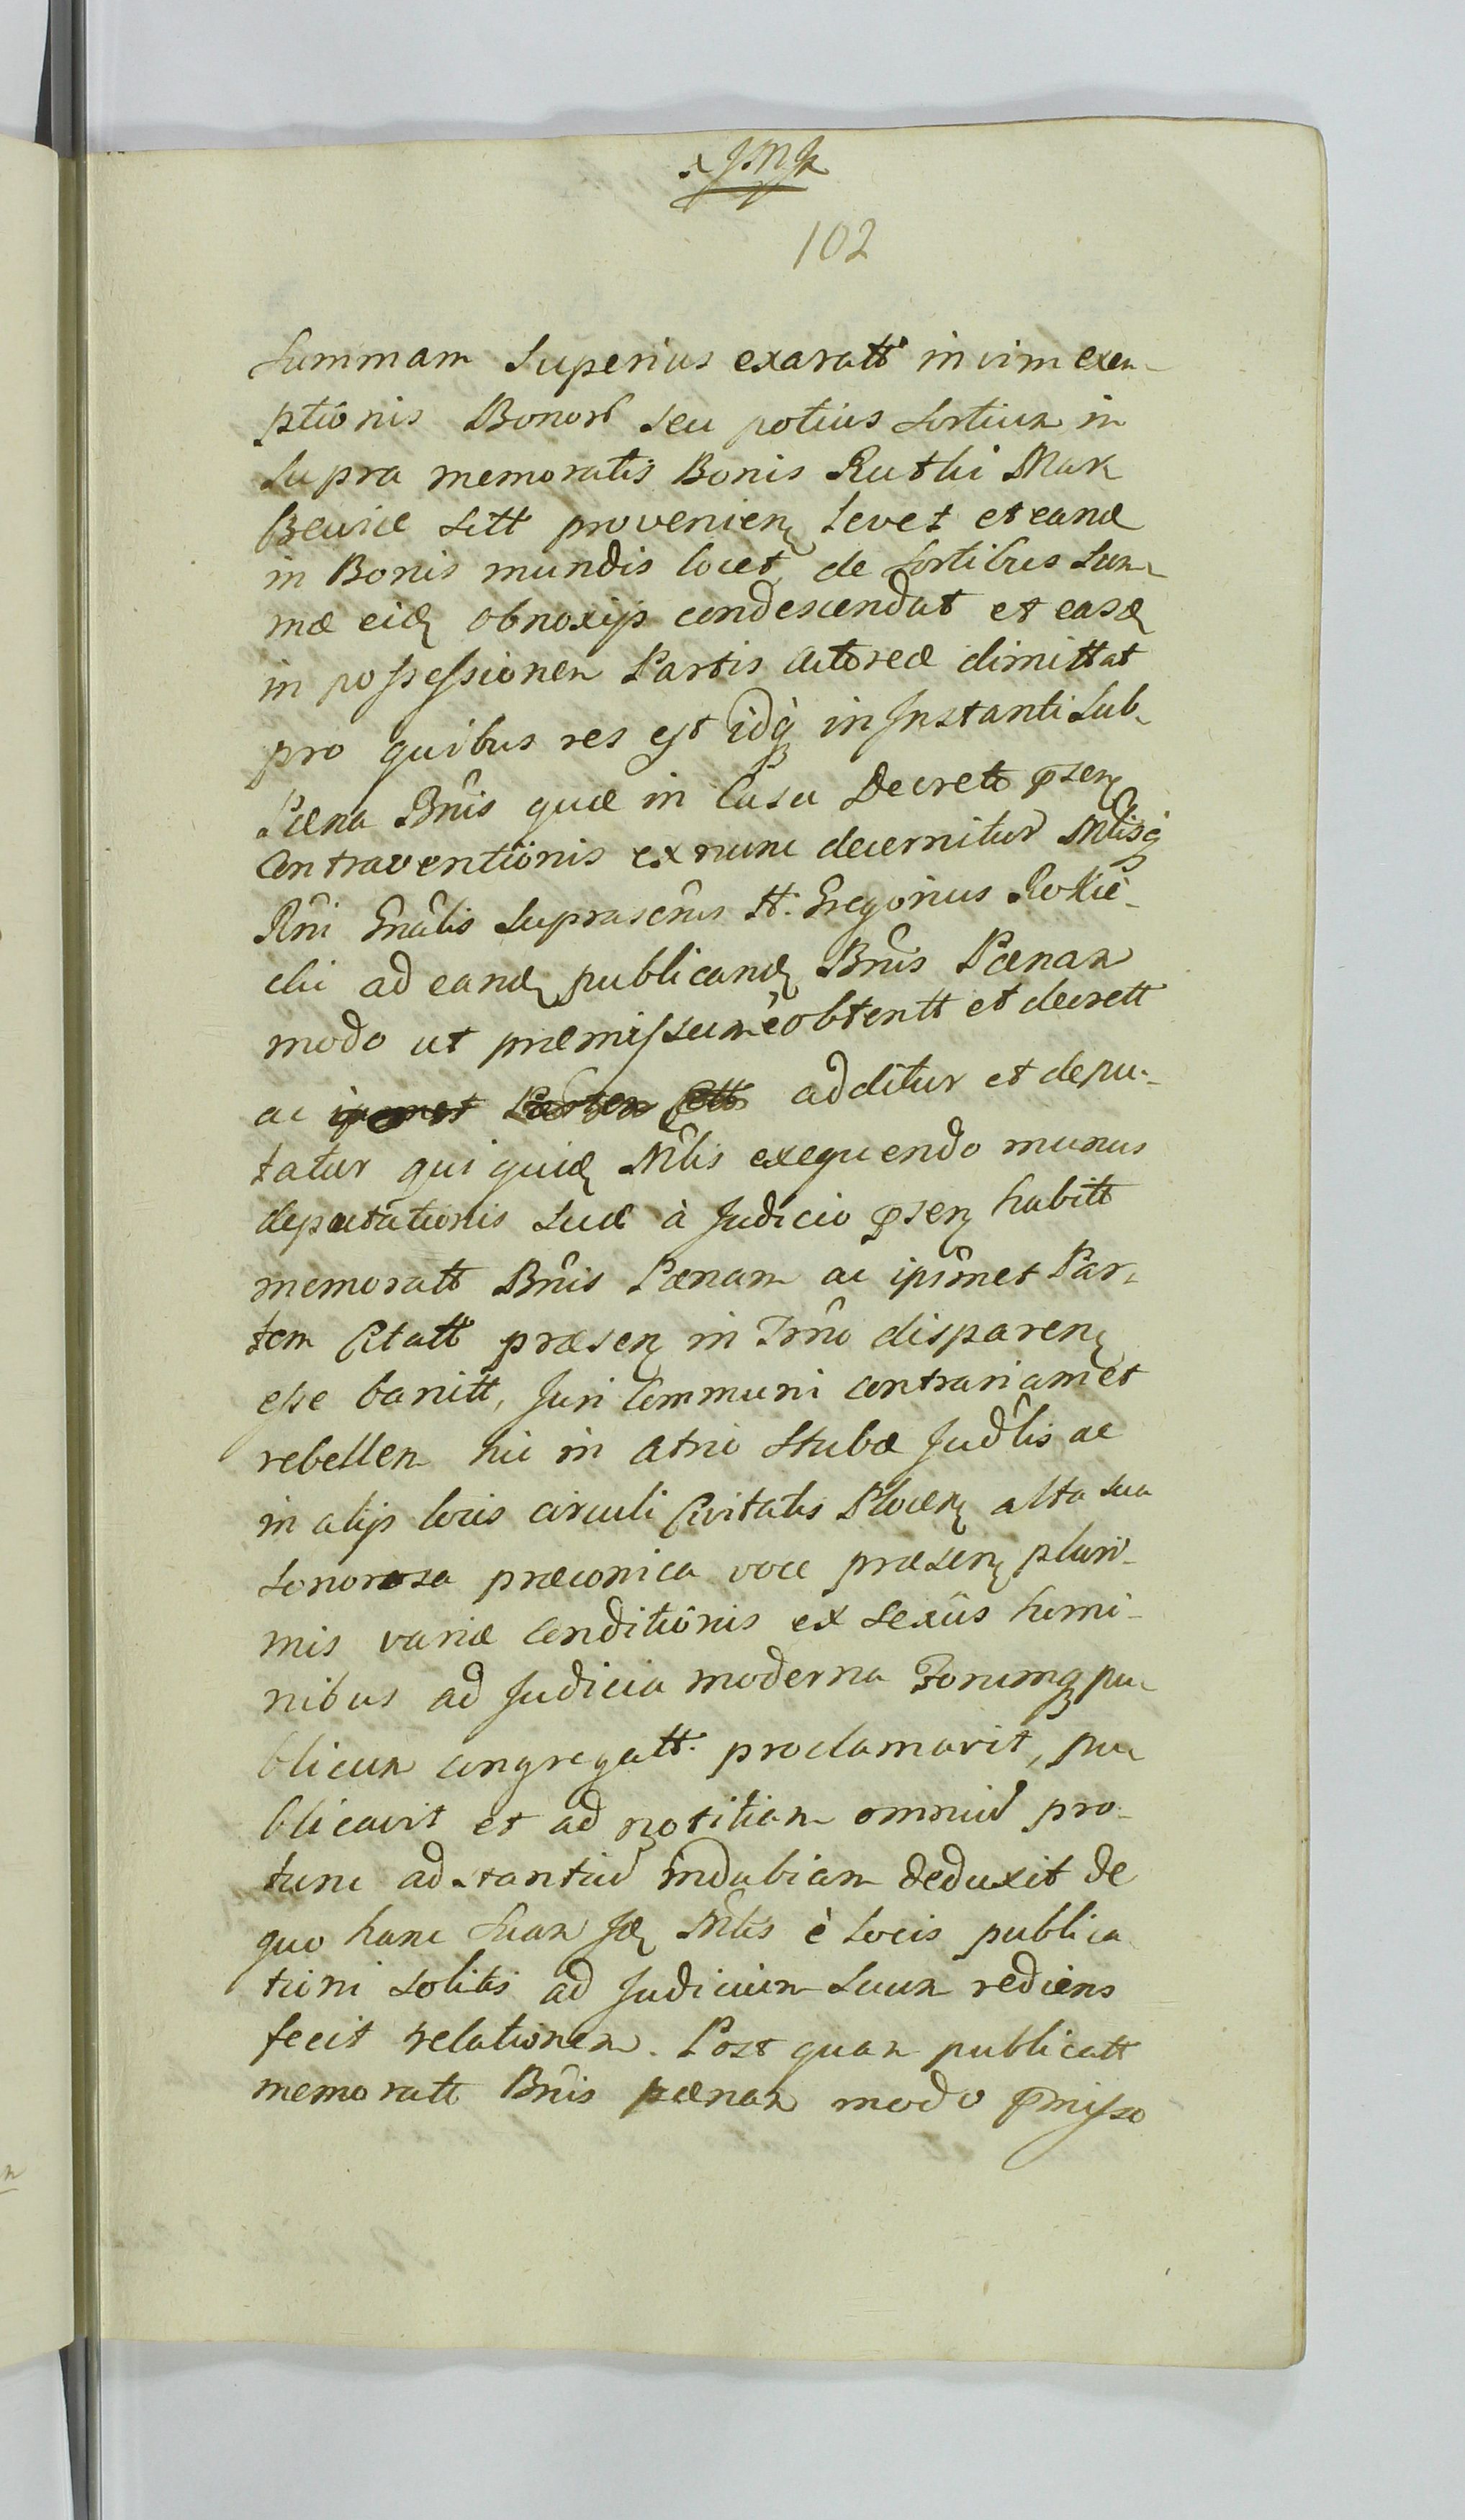 102
Summam Superius exaratt in vim exem-
ptionis Bonor seu potius sortium in
supra memoratis Bonis Rutki Mar
sitt provenien levet et eand
in Bonis mundis locet de sortibus sum-
mæ eid obnoxijs condescendat et easd
in possessionem Partis Actoreæ dimittat
pro quibus res est idq in Instanti sub
Pæna Bnis quæ in Casu Decreto psen
Contraventionis ex nunc decernitur Mlisq
Rni Gnalis suprascrus H. Gregorius Rokic-
ki ad eand publicand Bnis Pænam
modo ut præmissum e obtentt et decrett
ac ipsmet Partem Citt additur et depu-
tatur qui quid Mlis exequendo munus
deputationis suæ à Judicio psen habitt
memoratt Bnis Pænam ac ipsmet Par-
tem Citatt præsen in Trno disparen
esse banitt, Juri Communi contrariam et
rebellem hic in atrio Stubæ Judlis ac
in alijs locis circuli Civitatis Plocen alta sua
sonorosa præconica voce præsen pluri-
mis variæ Conditionis ex sexus homi-
nibus ad Judicia moderna Forumq pu-
blicum congregatt. proclamavit, pu
blicavit et ad notitiam omniu pro-
tunc adstantiu indubiam deduxit de
quo hanc suam Id Mlis è locis publica
tioni solitis ad Judicium suum rediens
fecit relationem. Post quam publicatt
memoratt Bnis pænam modo pmisso